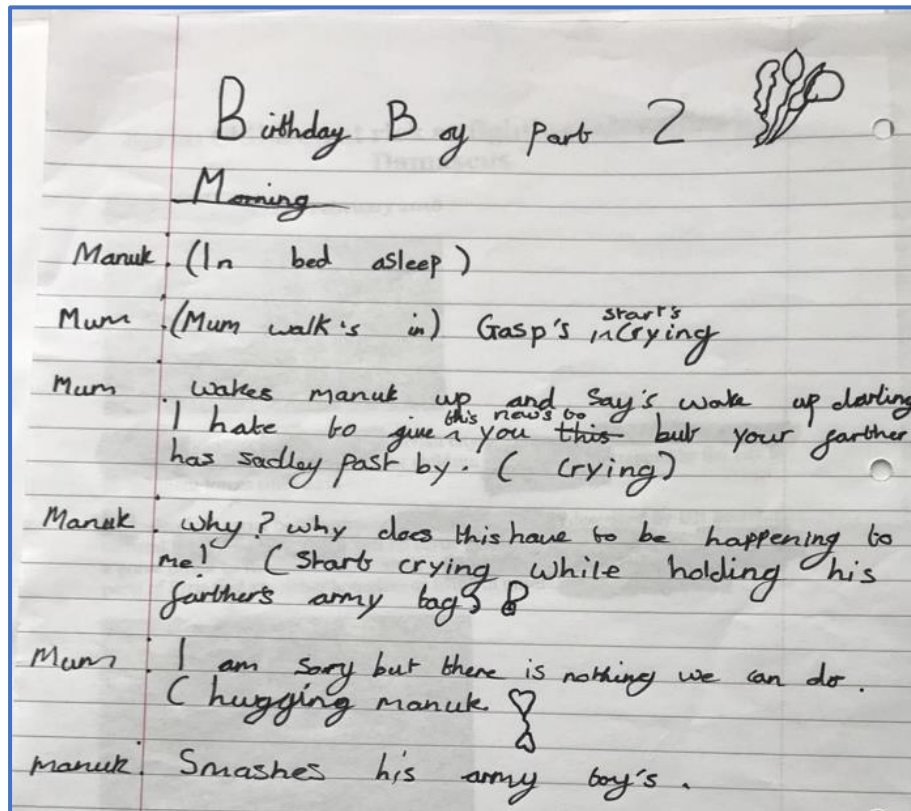 Birthday Boy part 2
Morning
Manuk. (In bed asleep)
Mum. (Mum walk's in) Gasp's start's crying
Mum. wakes manuk up and Say's wake up darling
I hate to give this news to you this but your farther
has sadley past by. (crying)
Manuk. why? why does this have to be happening to
me! (Start crying while holding his
farther's army tag)
Mum. I am sorry but there is nothing we can do.
(hugging manuk.
manuk. Smashes his army toy's.